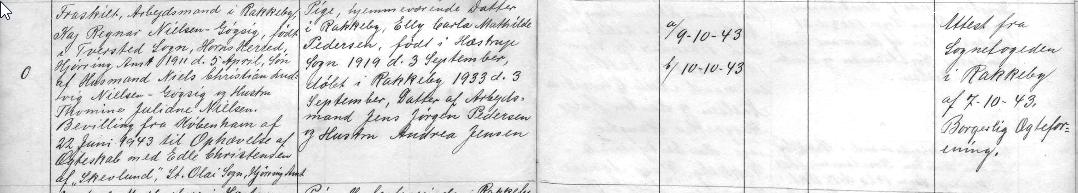 Fraskilt, Arbejdsmand i Rakkeby,
Kaj Regnar Nielsen-Gøgsig, født
i Tversted Sogn, Horns Herred,
Hjørring Amt 1911 d. 5 April, Søn
af Husmand Niels Christian Lud-
vig Nielsen-Gøgsig og Hustru
Thomine Juliane Nielsen.
Bevilling fra København af
22 Juni 1943 til Ophævelse af
Ægteskab med Edle Christensen
af "Skevlund", St. Olai Sogn, Hjørring Amt
0
Pige, hjemmeværende Datter
i Rakkeby, Elly Carla Mathilde
Pedersen, født i Hæstrup
Sogn 1919 d. 3 September,
døbt i Rakkeby 1933 d. 3
September, Datter af Arbejds-
mand Jens Jørgen Pedersen
og Hustru Andrea Jensen
a/ 9-10-43
b/ 10-10-43
Attest fra
Sognefogeden
i Rakkeby
af 7-10-43.
Borgerlig Ægtefor=
ening.